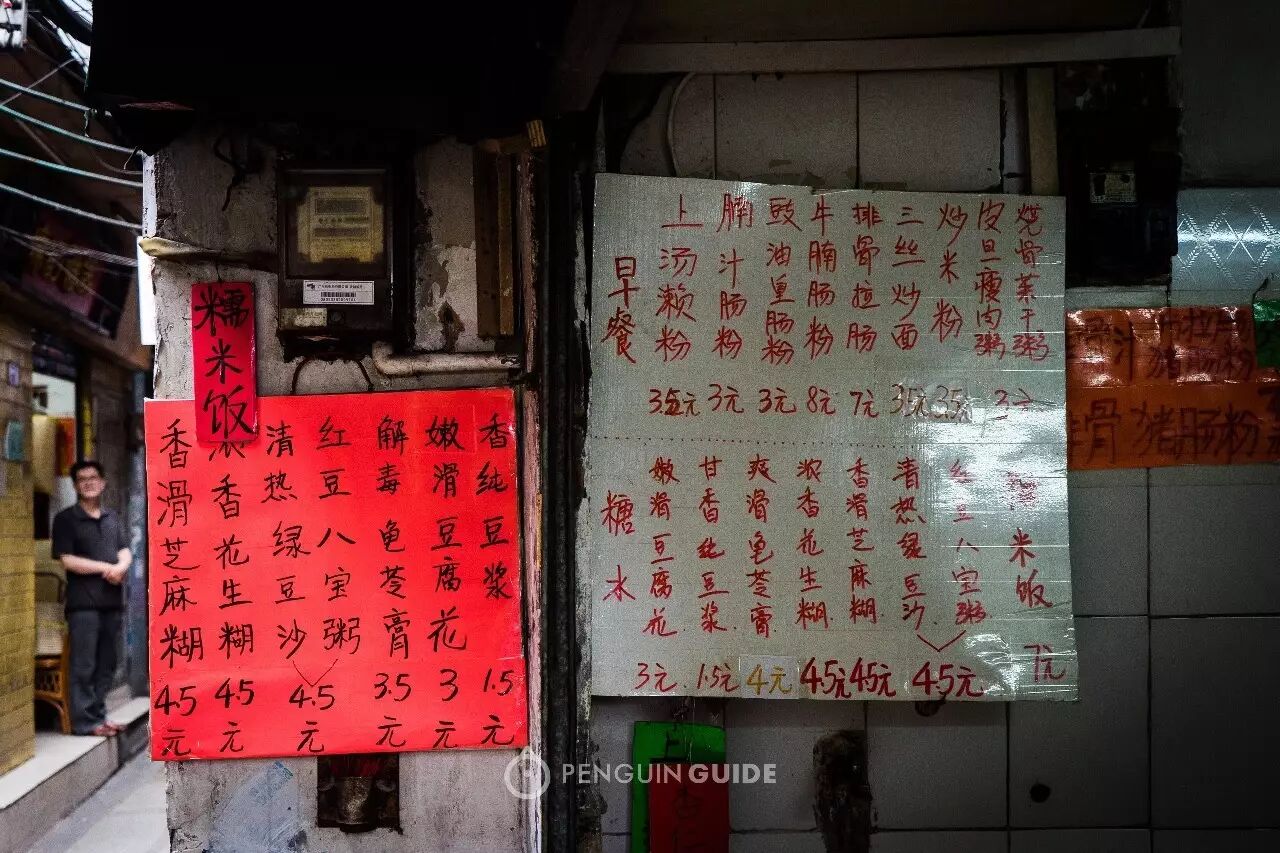 糯米饭
香滑芝麻糊 4.5元
浓香花生糊 4.5元
清热绿豆沙
红豆八宝粥
4.5元
解毒龟苓膏 3.5元
嫩滑豆腐花 3元
香纯豆浆 1.5元
早餐
上汤濑粉 3.5元
腩汁肠粉 3元
豉油皇肠粉 3元
牛腩肠粉 8元
排骨拉肠 7元
三丝炒面 3.5元
炒米粉 3.5元
皮旦瘦肉粥
烧骨菜干粥
3元
糖水
嫩滑豆腐花 3元
甘香纯豆浆 1.5元
爽滑龟苓膏 4元
浓香花生糊 4.5元
香滑芝麻糊 4.5元
清热绿豆沙
红豆八宝粥
4.5元
米饭 7元
骨汁
猪肠粉
骨 猪肠粉
上
杏仁
PENGUIN GUIDE